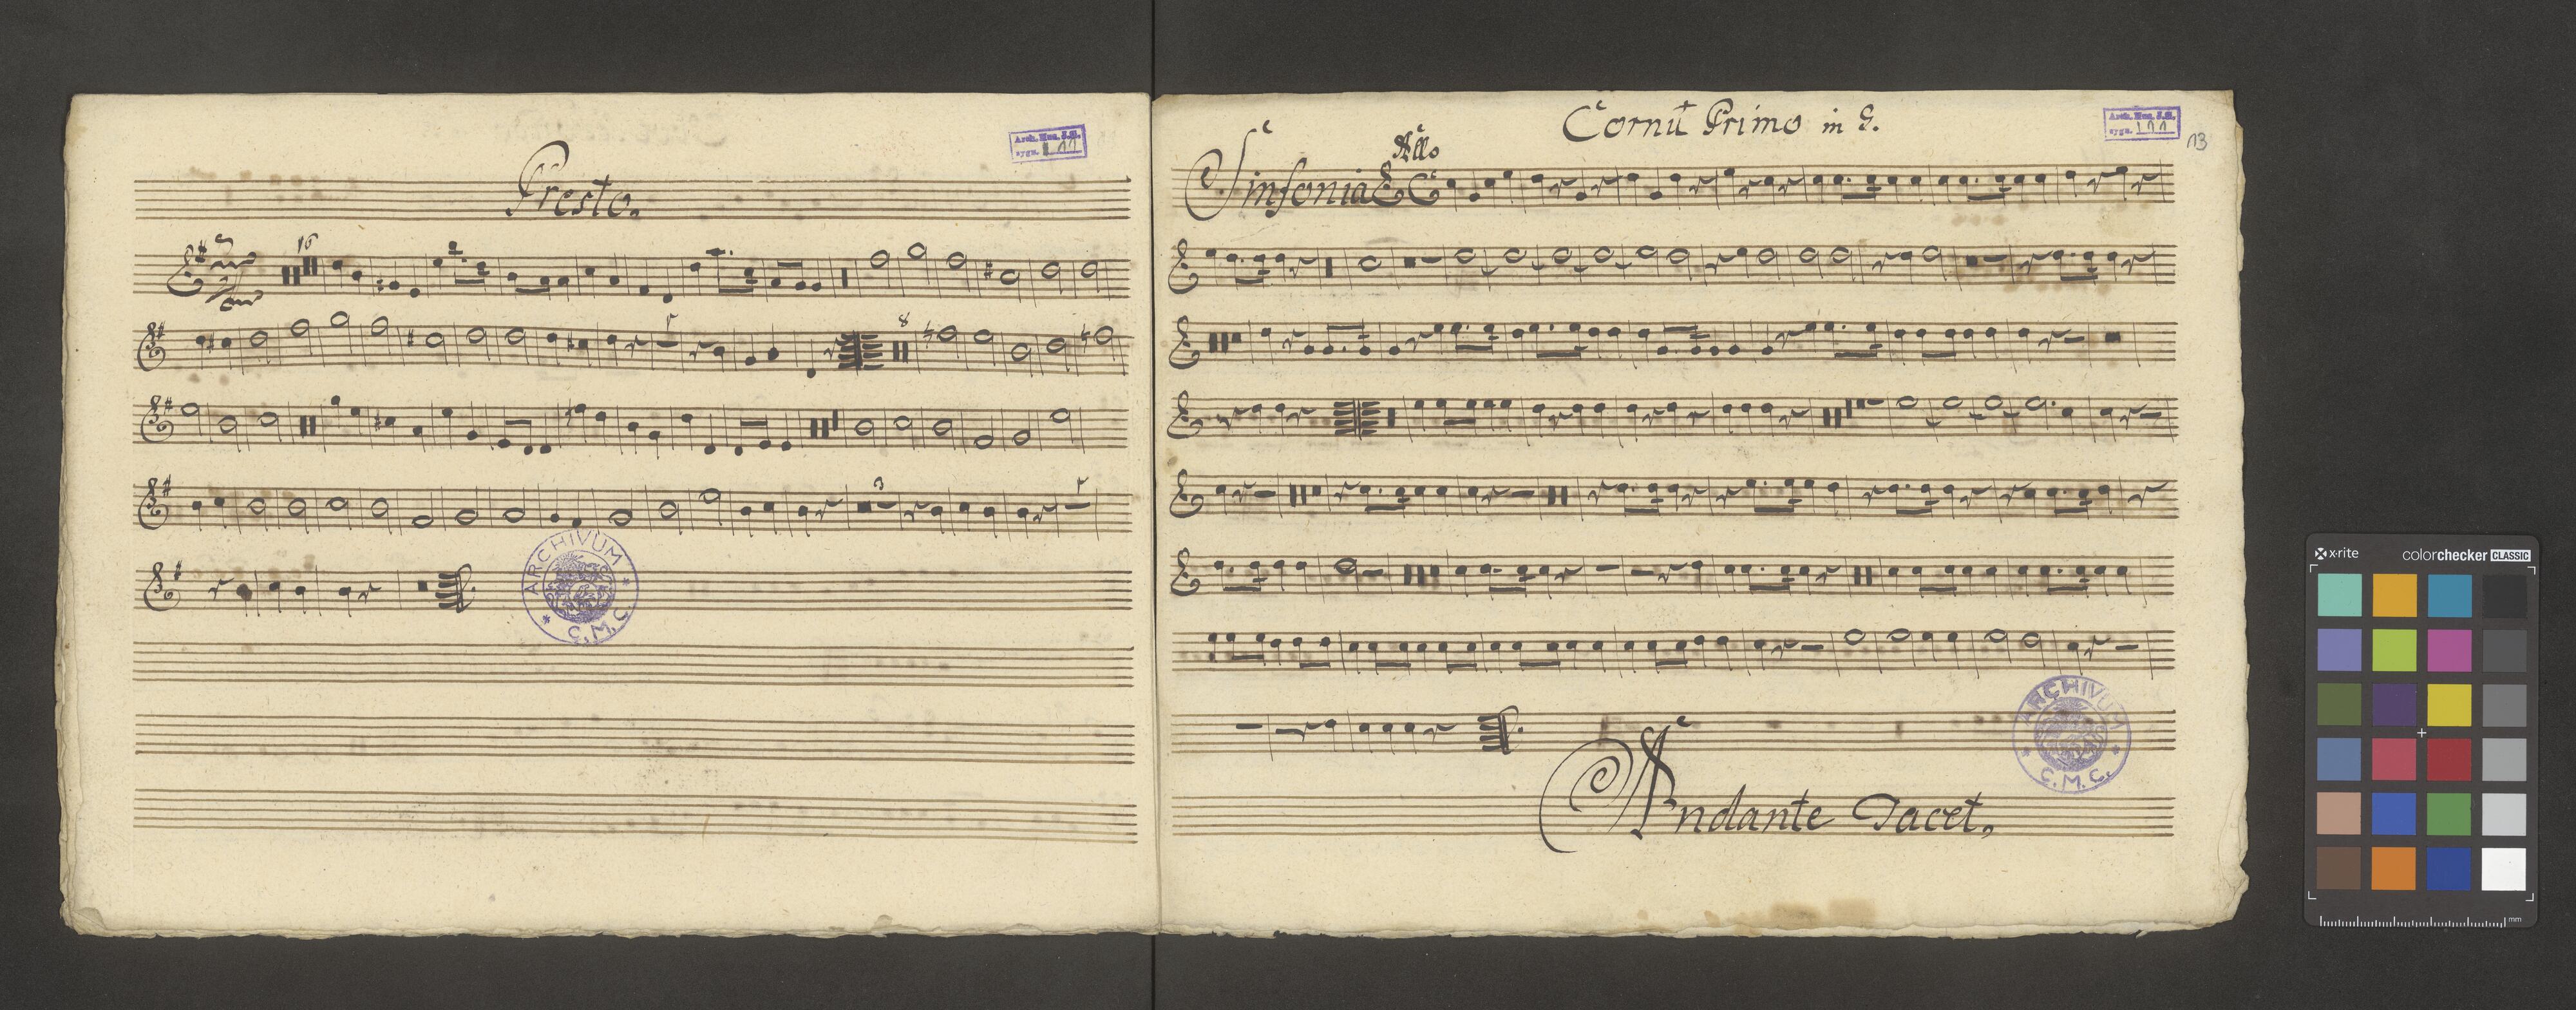 Presto.
Arch. Mus. S.B.
sygn.
16
8
3
ARCHIVUM
C.M.C.
Cornū Primo in G.
Arch. Mus. S.B.
sygn.
13
Allo
Sinfonia
ARCHIVUM
C.M.C.
Andante Tacet,
x·rite
colorchecker CLASSIC
mm